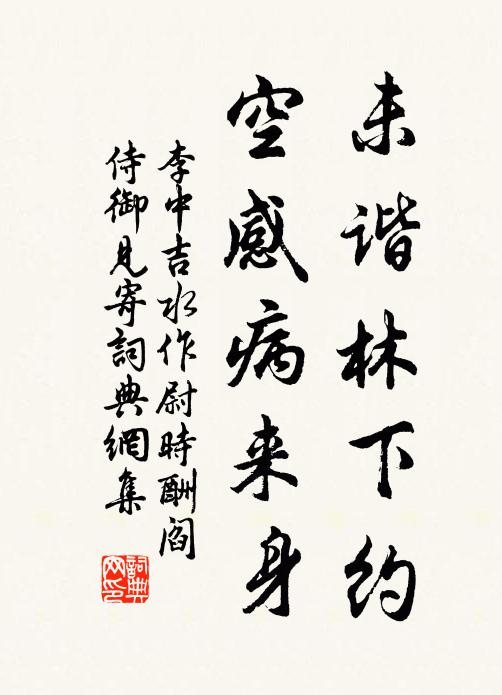 未谐林下约
空感病来身
李中吉水作尉時酬阎
侍御見寄詞典網集
詞典
网印